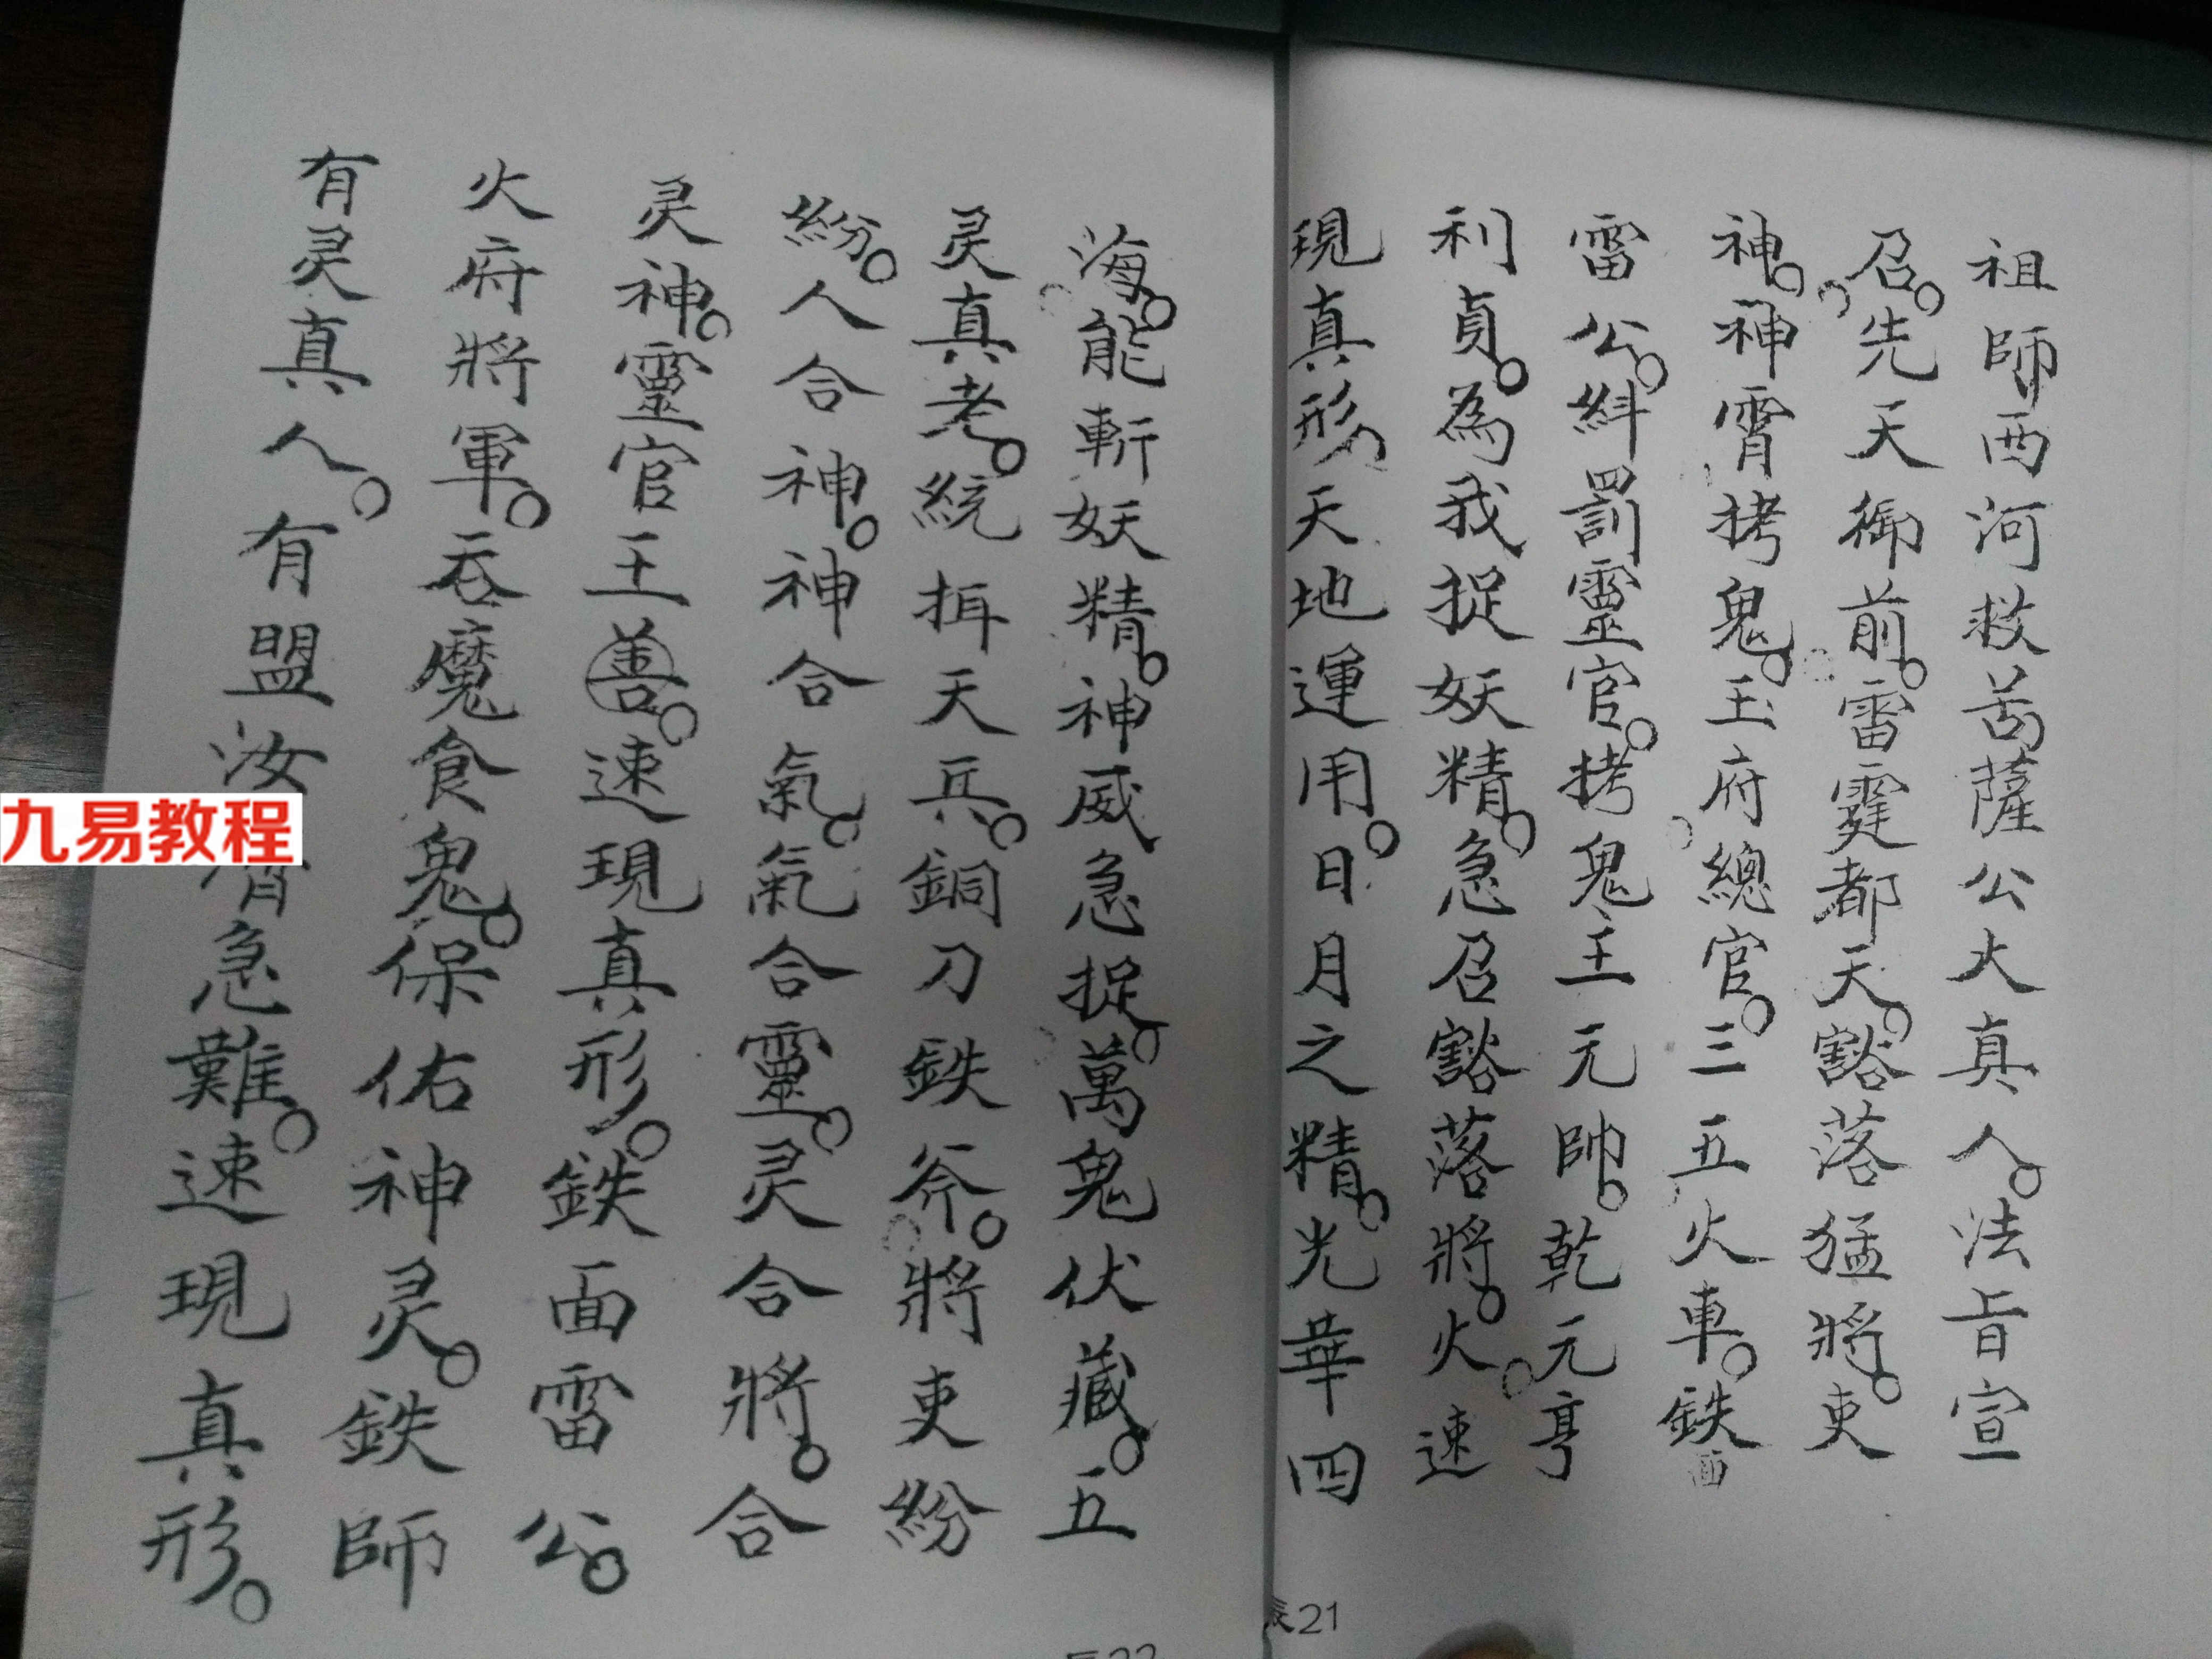 祖師西河救苦薩公大真人。法旨宣
召。先天御前。雷霆都天。豁落猛將。吏
神。神霄拷鬼。玉府總官。三五火車。鉄面
雷公。糾罰靈官。拷鬼主元帥。乾元亨
利貞。為我捉妖精。急召豁落將。火速
現真形。天地運用。日月之精。光華四
長21
海。能斬妖精。神威急捉。萬鬼伏藏。五
灵真老。統揖天兵。銅刀鉄斧。將吏紛
紛。人合神。神合氣。氣合靈。灵合將。合
灵神。靈官王善。速現真形。鉄面雷公。
火府將軍。吞魔食鬼。保佑神灵。鉄師
有灵真人。有盟汝 急難。速現真形。
九易教程